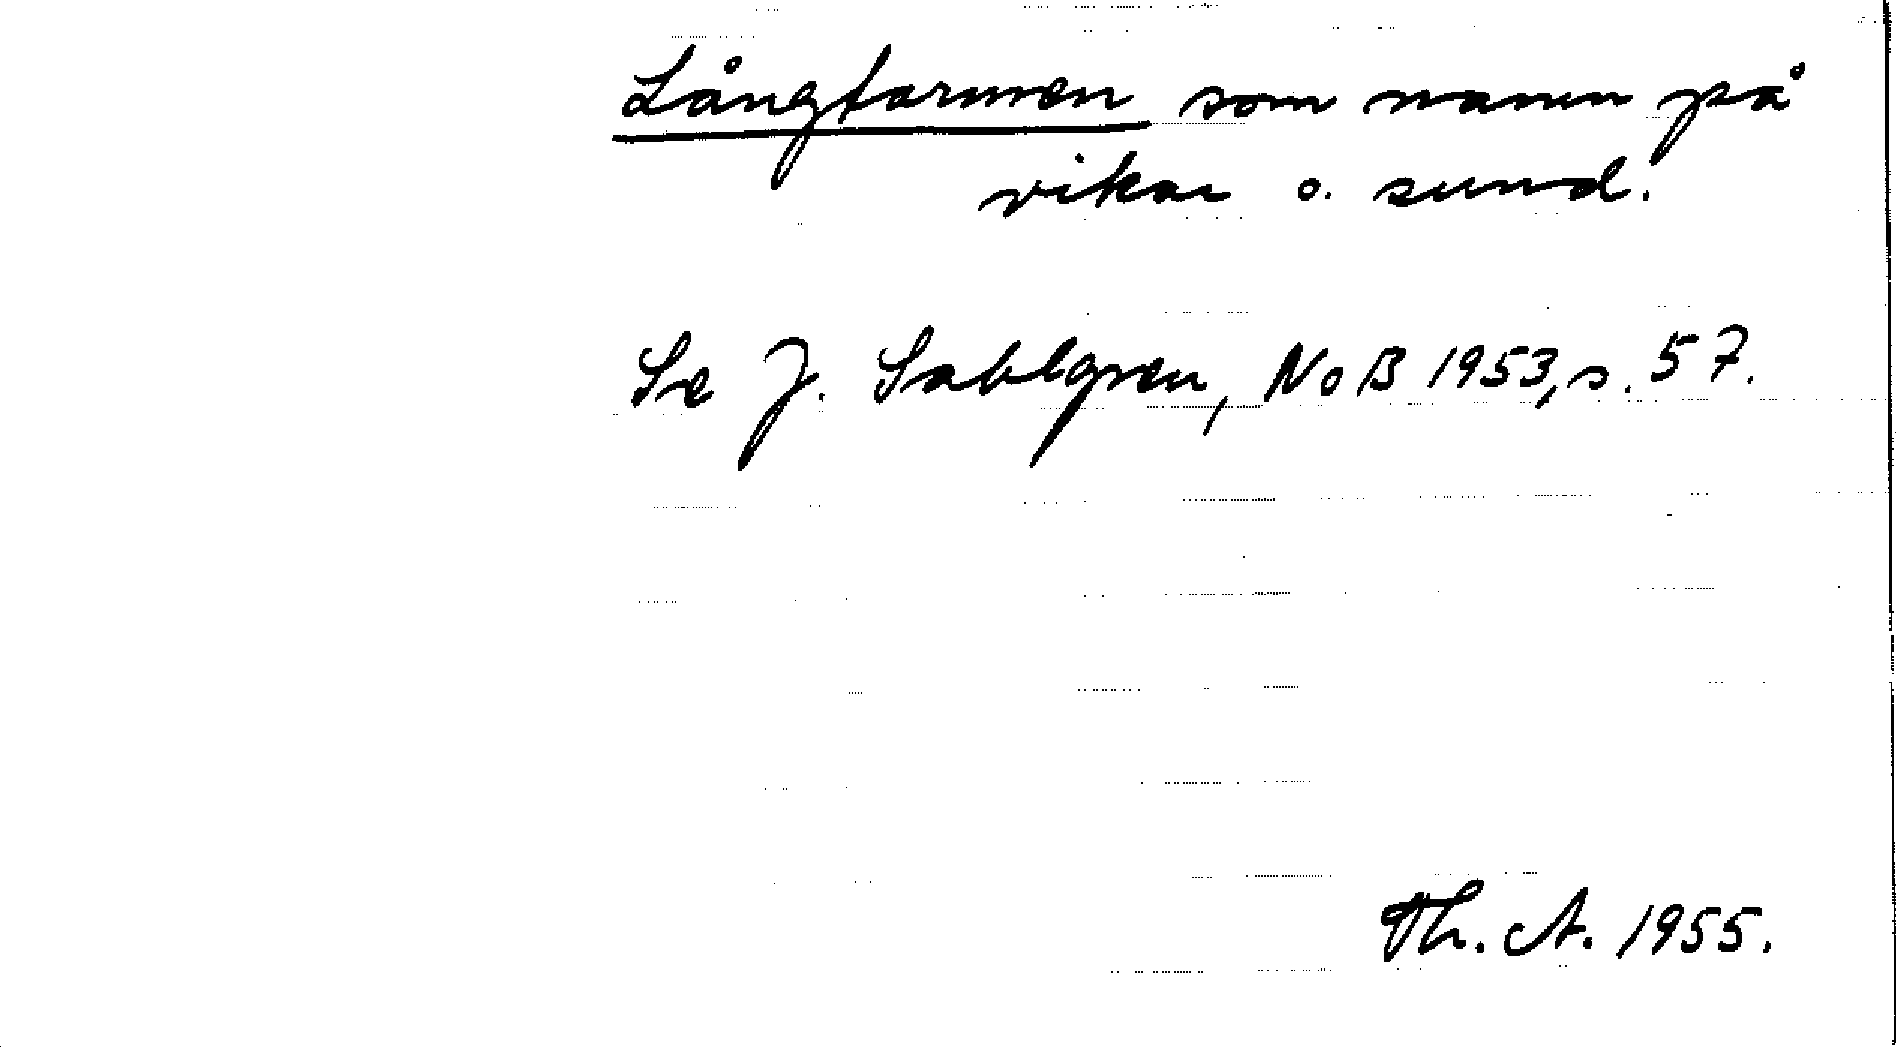 Långtarmen som namn på
vikar o. sund.
Se J. Sahlgren, NoB 1953, s. 57.
Th. A. 1955.